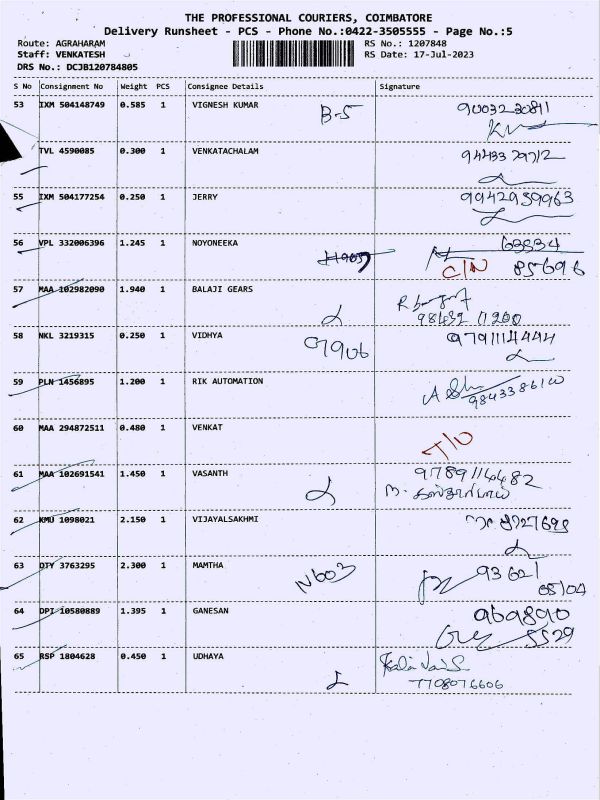 THE PROFESSIONAL COURIERS, COIMBATORE
Delivery Runsheet - PCS - Phone No.:0422-3505555 - Page No.:5
Route: AGRAHARAM RS No.: 1207848
Staff: VENKATESH RS Date: 17-Jul-2023
DRS No.: DCJB120784805
S No Consignment No Weight PCS Consignee Details Signature
53 IXM 504148749 0.585 1 VIGNESH KUMAR B-5 9003230811
TVL 4590085 0.300 1 VENKATACHALAM
55 IXM 504177254 0.250 1 JERRY 9942959963
56 VPL 332006396 1.245 1 NOYONEEKA 63834
C/N 85696
57 MAA 102982090 1.940 1 BALAJI GEARS
98432 11200
58 NKL 3219315 0.250 1 VIDHYA G7906 9791114444
59 PLN 1456895 1.200 1 RIK AUTOMATION
60 MAA 294872511 0.480 1 VENKAT
61 MAA 102691541 1.450 1 VASANTH 9789114482
62 KMU 1098021 2.150 1 VIJAYALSAKHMI
63 OTY 3763295 2.300 1 MAMTHA N603 93621
05104
64 DPI 10580889 1.395 1 GANESAN 969890
5529
65 RSP 1804628 0.450 1 UDHAYA
7708076606